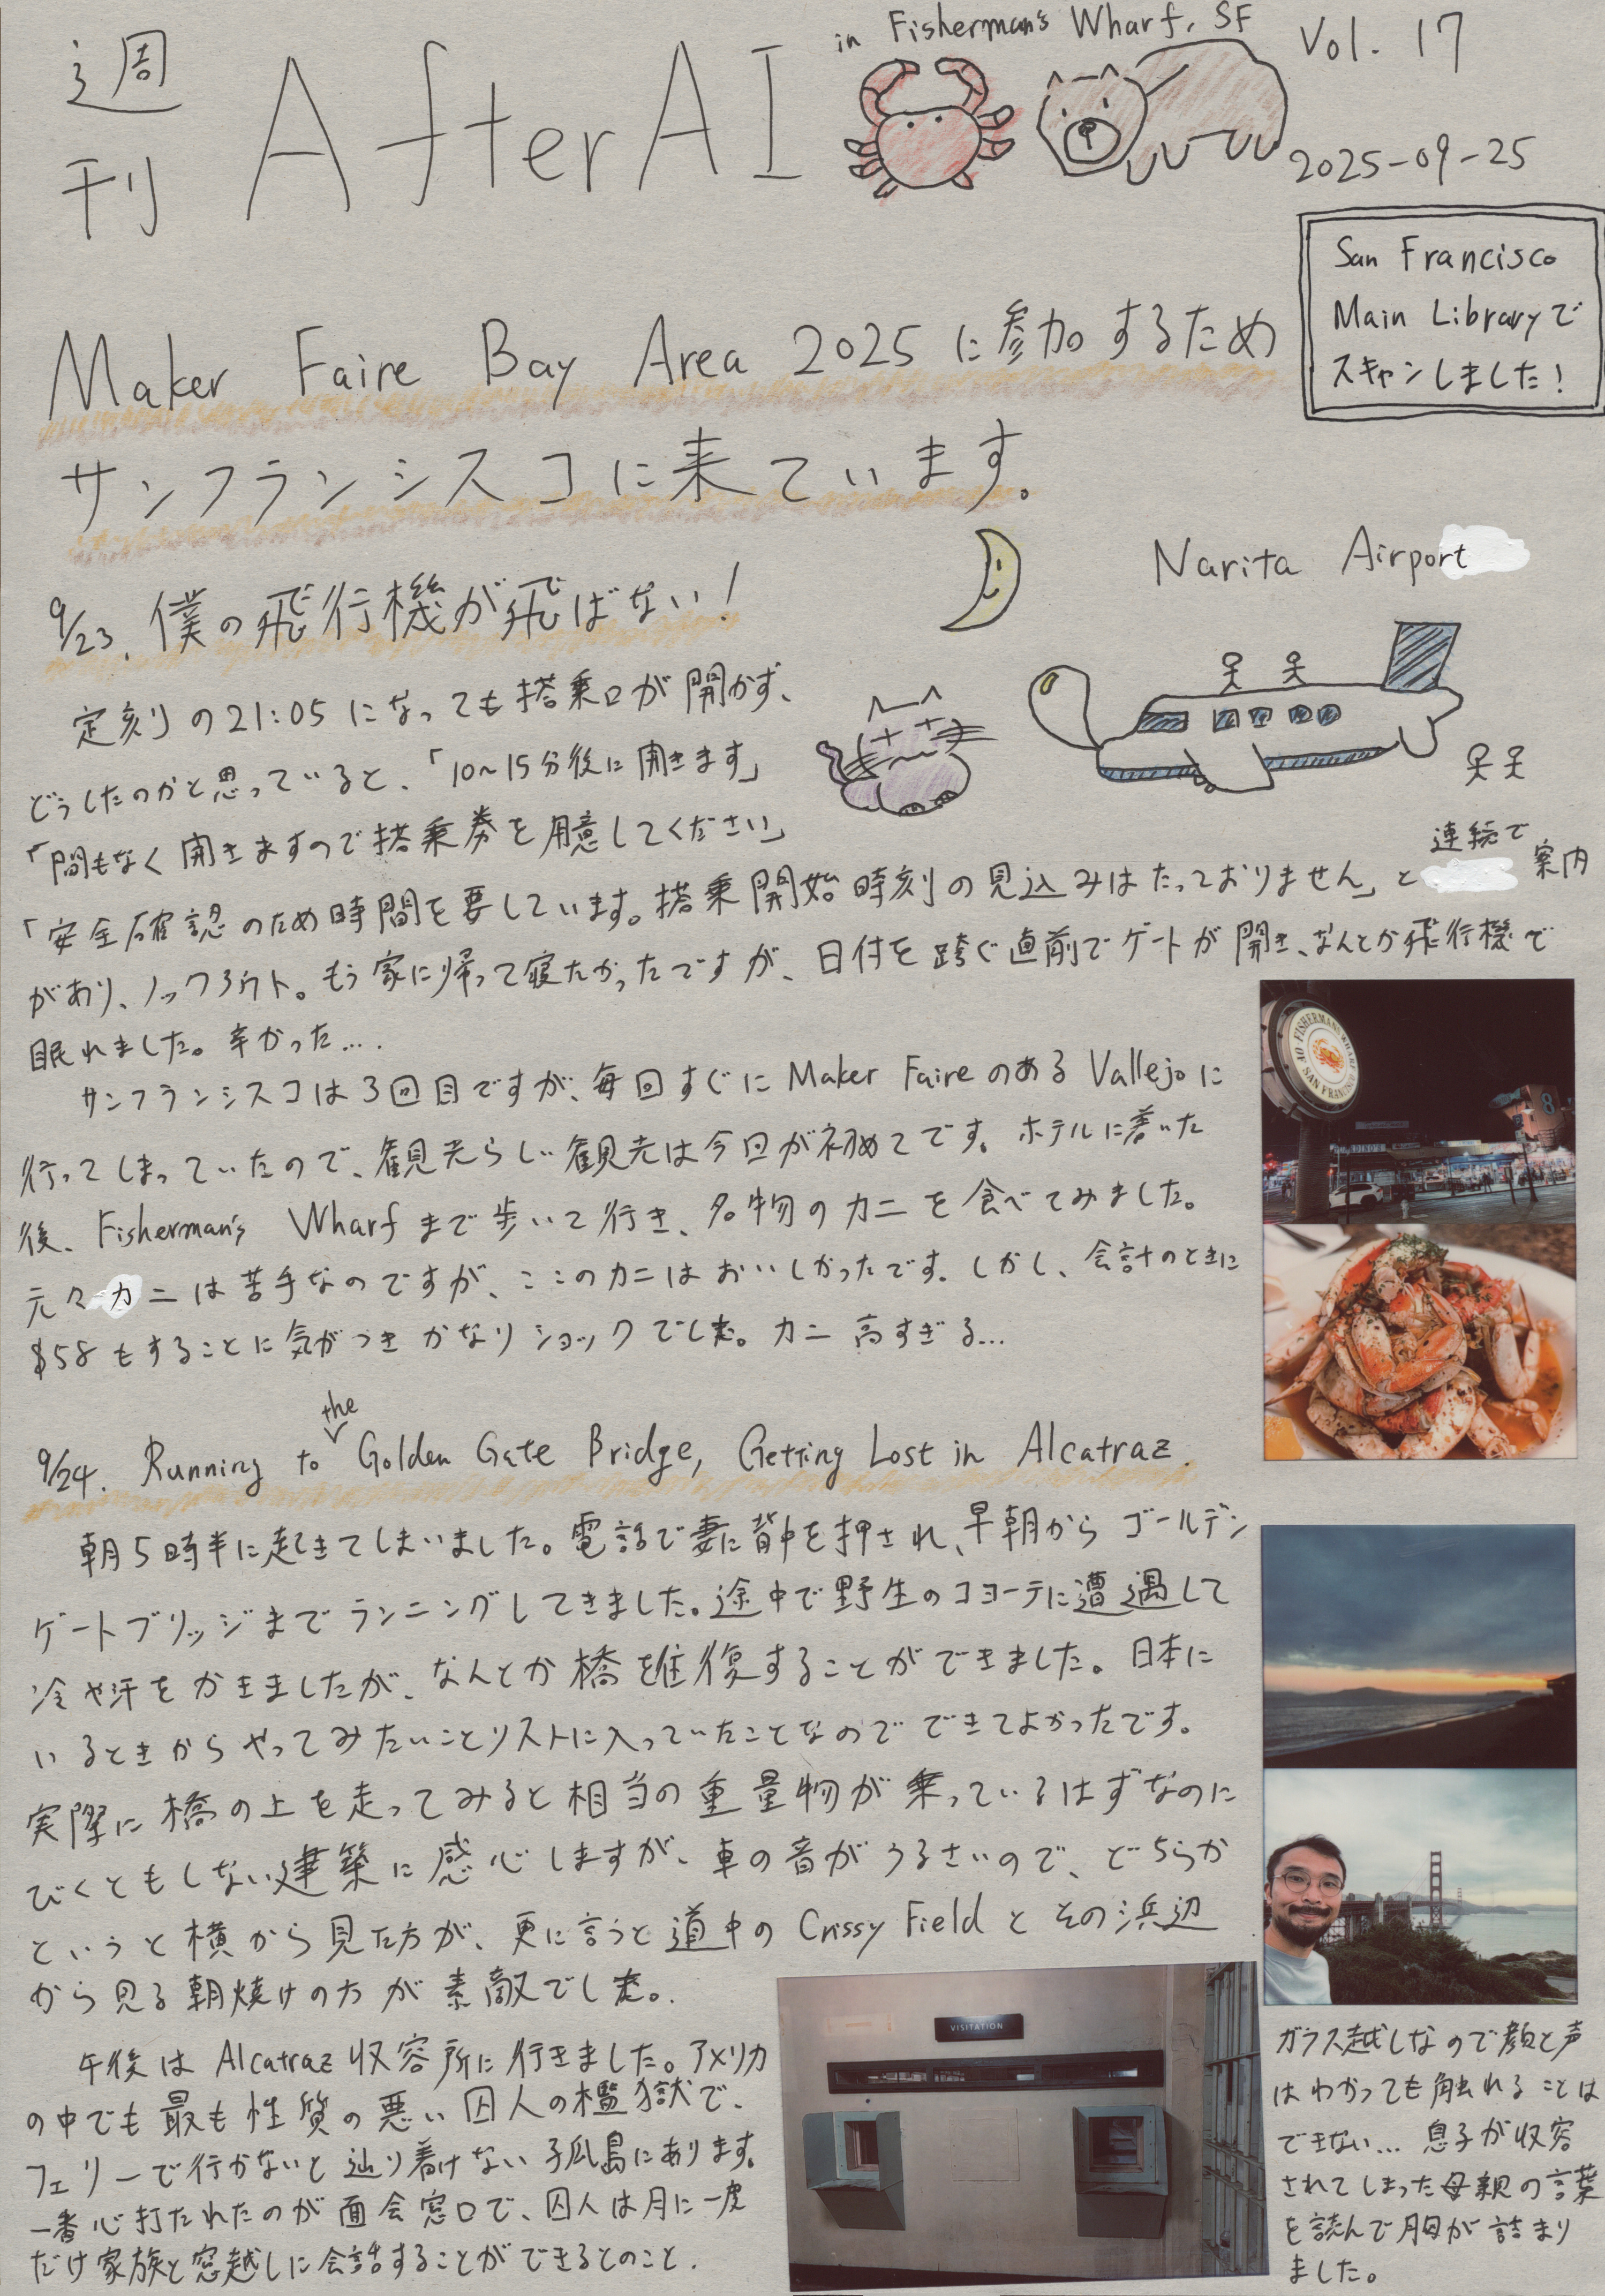 週刊 AfterAI
in Fisherman's Wharf, SF
Vol. 17
2025-09-25
San Francisco
Main Libraryで
スキャンしました!
Maker Faire Bay Area 2025 に参加するため
サンフランシスコに来ています。
Narita Airport
9/23. 僕の飛行機が飛ばない!
定刻の21:05になっても搭乗口が開かず、
どうしたのかと思っていると、「10~15分後に開きます」
「間もなく開きますので搭乗券を用意してください」
「安全確認のため時間を要しています。搭乗開始時刻の見込みはたっておりません」と連続で案内
があり、ノックアウト。もう家に帰って寝たかったですが、日付を跨ぐ直前でゲートが開き、なんとか飛行機で
眠れました。辛かった...
サンフランシスコは3回目ですが、毎回すぐに Maker Faire のある Vallejo に
行ってしまっていたので、観光らしい観光は今回が初めてです。ホテルに着いた
後、Fisherman's Wharf まで歩いて行き、名物のカニを食べてみました。
元々カニは苦手なのですが、ここのカニはおいしかったです。しかし、会計のときに
$58もすることに気がつきかなりショックでした。カニ高すぎる...
FISHERMAN'S WHARF
SAN FRANCISCO
8
9/24. Running to the Golden Gate Bridge, Getting Lost in Alcatraz.
朝5時半に起きてしまいました。電話で妻に背中を押され、早朝からゴールデン
ゲートブリッジまでランニングしてきました。途中で野生のコヨーテに遭遇して
冷や汗をかきましたが、なんとか橋を往復することができました。日本に
いるときからやってみたいことリストに入っていたことなのでできてよかったです。
実際に橋の上を走ってみると相当の重量物が乗っているはずなのに
びくともしない建築に感心しますが、車の音がうるさいので、どちらか
というと横から見た方が、更に言うと道中の Crissy Field とその浜辺
から見る朝焼けの方が素敵でした。
午後は Alcatraz 収容所に行きました。アメリカ
の中でも最も性質の悪い囚人の檻獄で、
フェリーで行かないと辿り着けない孤島にあります。
一番心打たれたのが面会窓口で、囚人は月に一度
だけ家族と窓越しに会話することができるとのこと.
VISITATION
ガラス越しなので顔と声
はわかっても触れることは
できない... 息子が収容
されてしまった母親の言葉
を読んで胸が詰まり
ました。